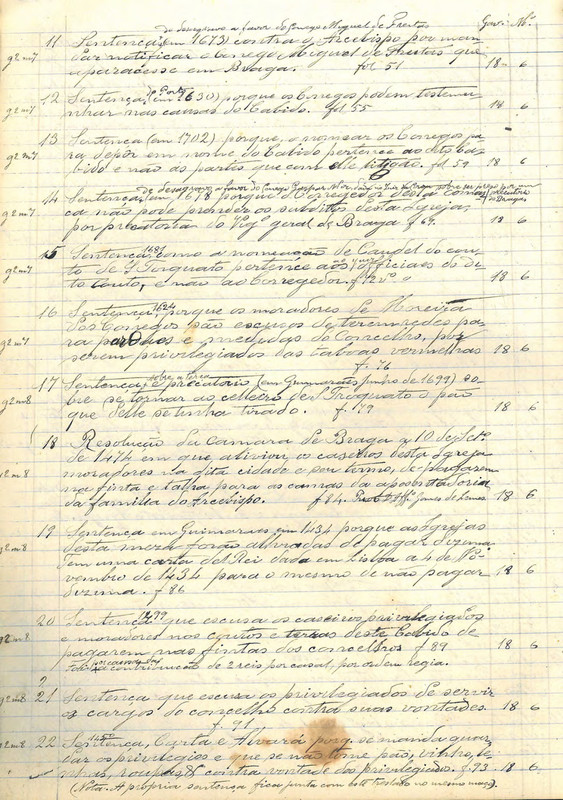 de desagravo a favor do Conego Miguel de Freitas Gav. Nº
g2m7 11 Sentença (em 1673) contra o Arcebispo por man-
dar notificar o Conego Miguel de Freitas que
aparecesse em Braga. fol 51 18 6
g2m7 12 Sentença, do Porto (em 1630) porque os Conegos podem testemu-
nhar nas causas do Cabido. fol 55 18 6
g2m7 13 Sentença (em 1702) porque o nomear os Conegos pa-
ra depôr em nome do Cabido pertence ao dito Ca-
bido e não ás partes que com elle litigão. f. 59 18 6
de desagravo a favor do Conego Gaspar
g2m7 14 Sentença, em 1618 porque o Corregedor desta comar-
ca não pode prender os subditos desta Igreja,
por precatorias do Vigº geral de Braga f. 69. 18 6
g2m7 15 Sentença, 1681 como a nomeação de Caudel do cou-
to de S. Torquato pertence aos officiaes do di-
to Couto, e não ao Corregedor. 18 6
g2m7 16 Sentença, 1624 porque os moradores de
dos Conegos são escusos de terem redes pa-
ra e medidas do Concelho, por
serem privilegiados das tabuas vermelhas 18 6
f. 76
g2m8 17 Sentença, e precatorio (em Guimarães Junho de 1699) so-
bre se tornar ao celleiro de S. Troquato o pão
que delle se tinha tirado. f. 79 18 6
12 m 8 18 Resolução da Camara de Braga a 10 de Setº
de 1474 em que alivion os caseiros desta Igreja
moradores na dita cidade e seu termo, de pagarem
na finta e talha para as camas da aposentadoria
da familia do Arcebispo. f 84. Gomes de Lemos 18 6
g2m8 19 Sentença em Guimarães em 1434 porque as Igrejas
desta meza forão aliviadas de pagar dizima
tem uma carta del Rei dada em Lisboa a 4 de No-
vembro de 1434 para o mesmo de não pagar 18 6
dizima. f 86
g2m8 20 Sentença 1499 que escusa os caseiros privilegiados
e moradores nos coutos e terras deste Cabido de
pagarem nas fintas dos concelhos f 89 18 6
a contribuição de 2 reis por casal, por ordem regia.
?
g2m8 21 Sentença que escusa os privilegiados de servir
os cargos do concelho contra suas vontades. 18 6
f. 91
g2m8 22 Sentença, 1450 Carta e Alvará porq. se manda guar-
dar os privilegios e que se não tome pão, vinho, le-
nhas, roupas, & contra vontade dos privilegiados. f. 93 18 6
(Nota. A propria sentença fica junta com este treslado no mesmo maço).